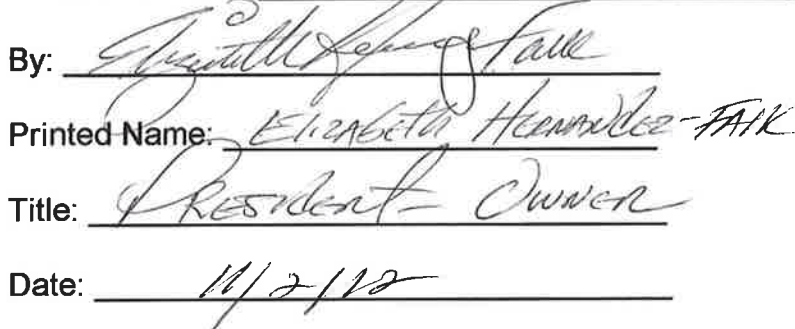 By: Elizabeth Falk
Printed Name: Elizabeth Hernandez-Falk
Title: President - Owner
Date: 11/2/12